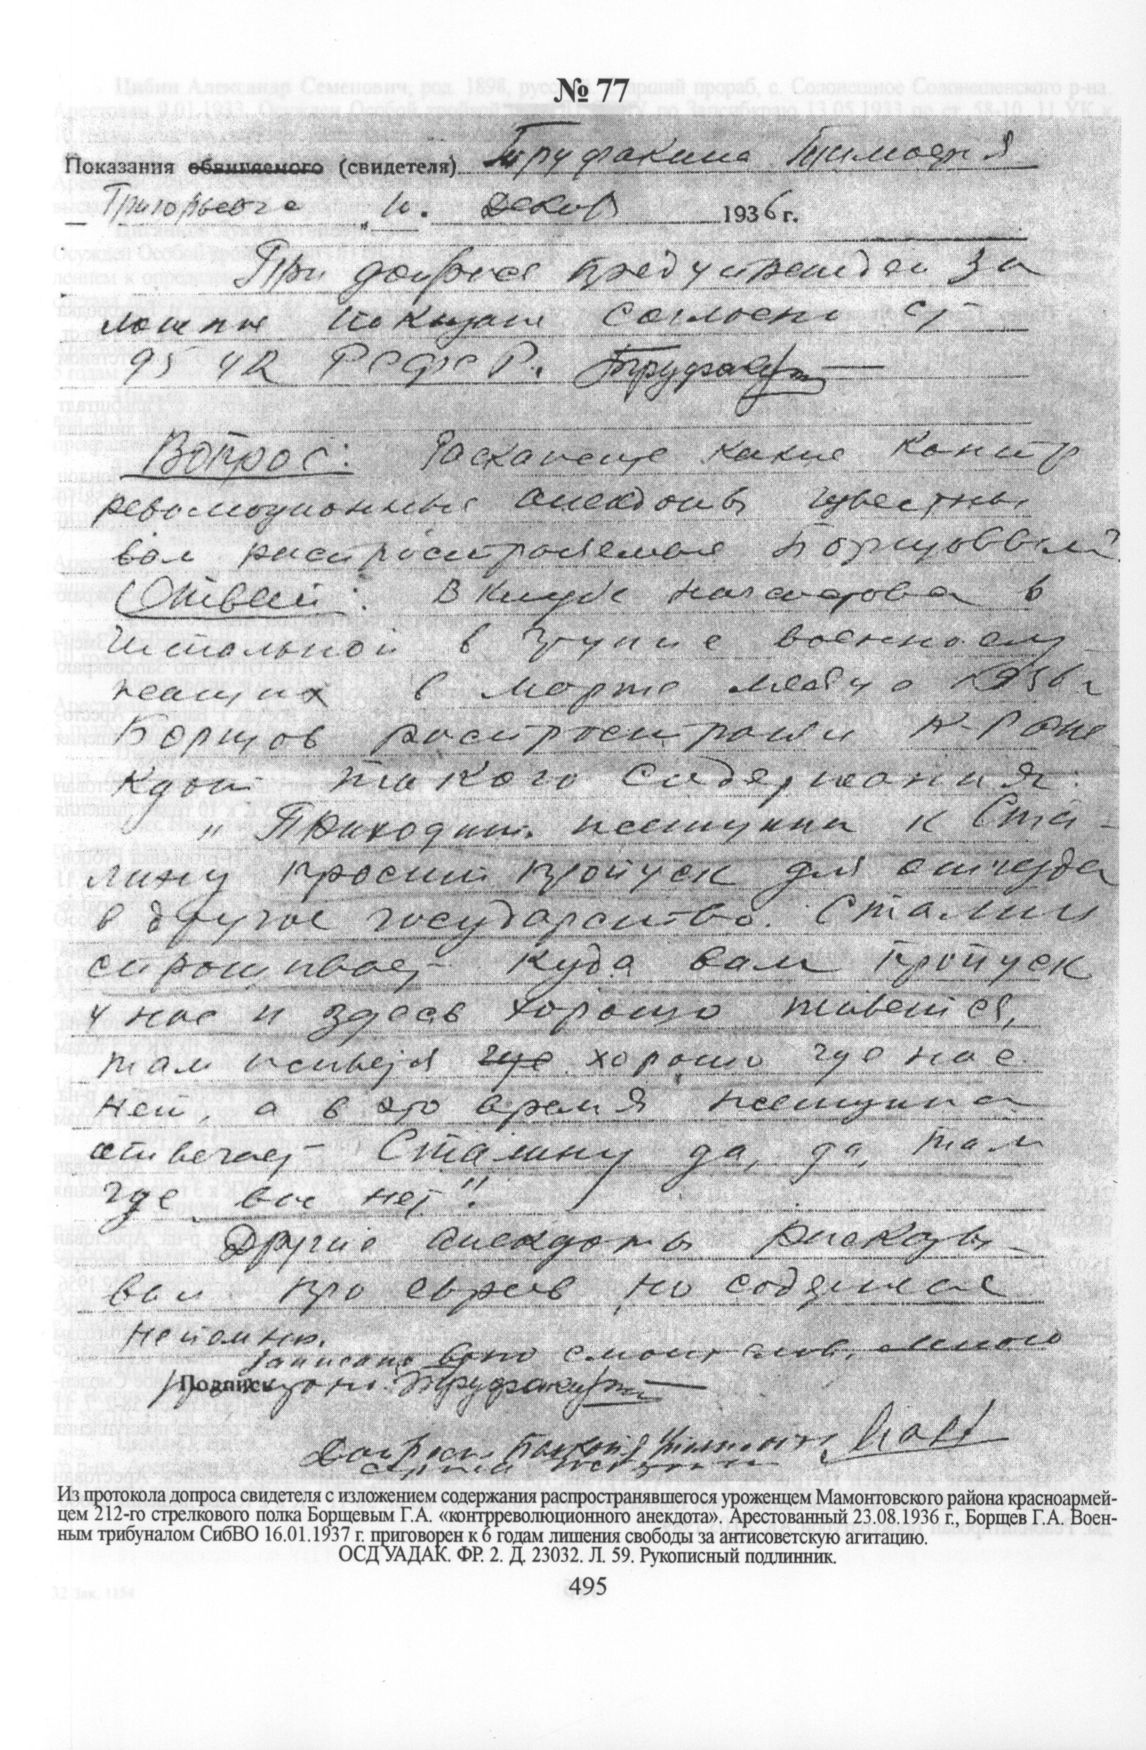 № 77
Показания обвиняемого (свидетеля) Труфакина Тимофея
Григорьевича "10" Декаб 1936 г.
При допросе предупрежден за
ложные показания согласно ст
95 УК РСФСР. Труфакин
Вопрос: Раскажите какие контр
революционные анекдоты известны
вам распространяемые Борщовым?
Ответ: В клубе начсостава в
читальной в групе военнослу
жащих в марте месяце 1936 г
Борщов распространял к-р анек
кдот такого содержания:
"Приходит женщина к Ста-
лину просит пропуск для отъезда
в другое государство. Сталин
спрашивает куда вам пропуск
у нас и здесь хорошо живется,
там живется где хорошо где нас
нет, а в это время женщина
отвечает Сталину да, да, там
где вас нет".
Другие анекдоты рассказы-
вал про евреев но содержание
не помню.
Записано верно с моих слов, мною
прочитано. Труфакин
Подпись
Допросил
Из протокола допроса свидетеля с изложением содержания распространявшегося уроженцем Мамонтовского района красноармей-
цем 212-го стрелкового полка Борщевым Г.А. «контрреволюционного анекдота». Арестованный 23.08.1936 г., Борщев Г.А. Воен-
ным трибуналом СибВО 16.01.1937 г. приговорен к 6 годам лишения свободы за антисоветскую агитацию.
ОСД УАДАК. ФР. 2. Д. 23032. Л. 59. Рукописный подлинник.
495